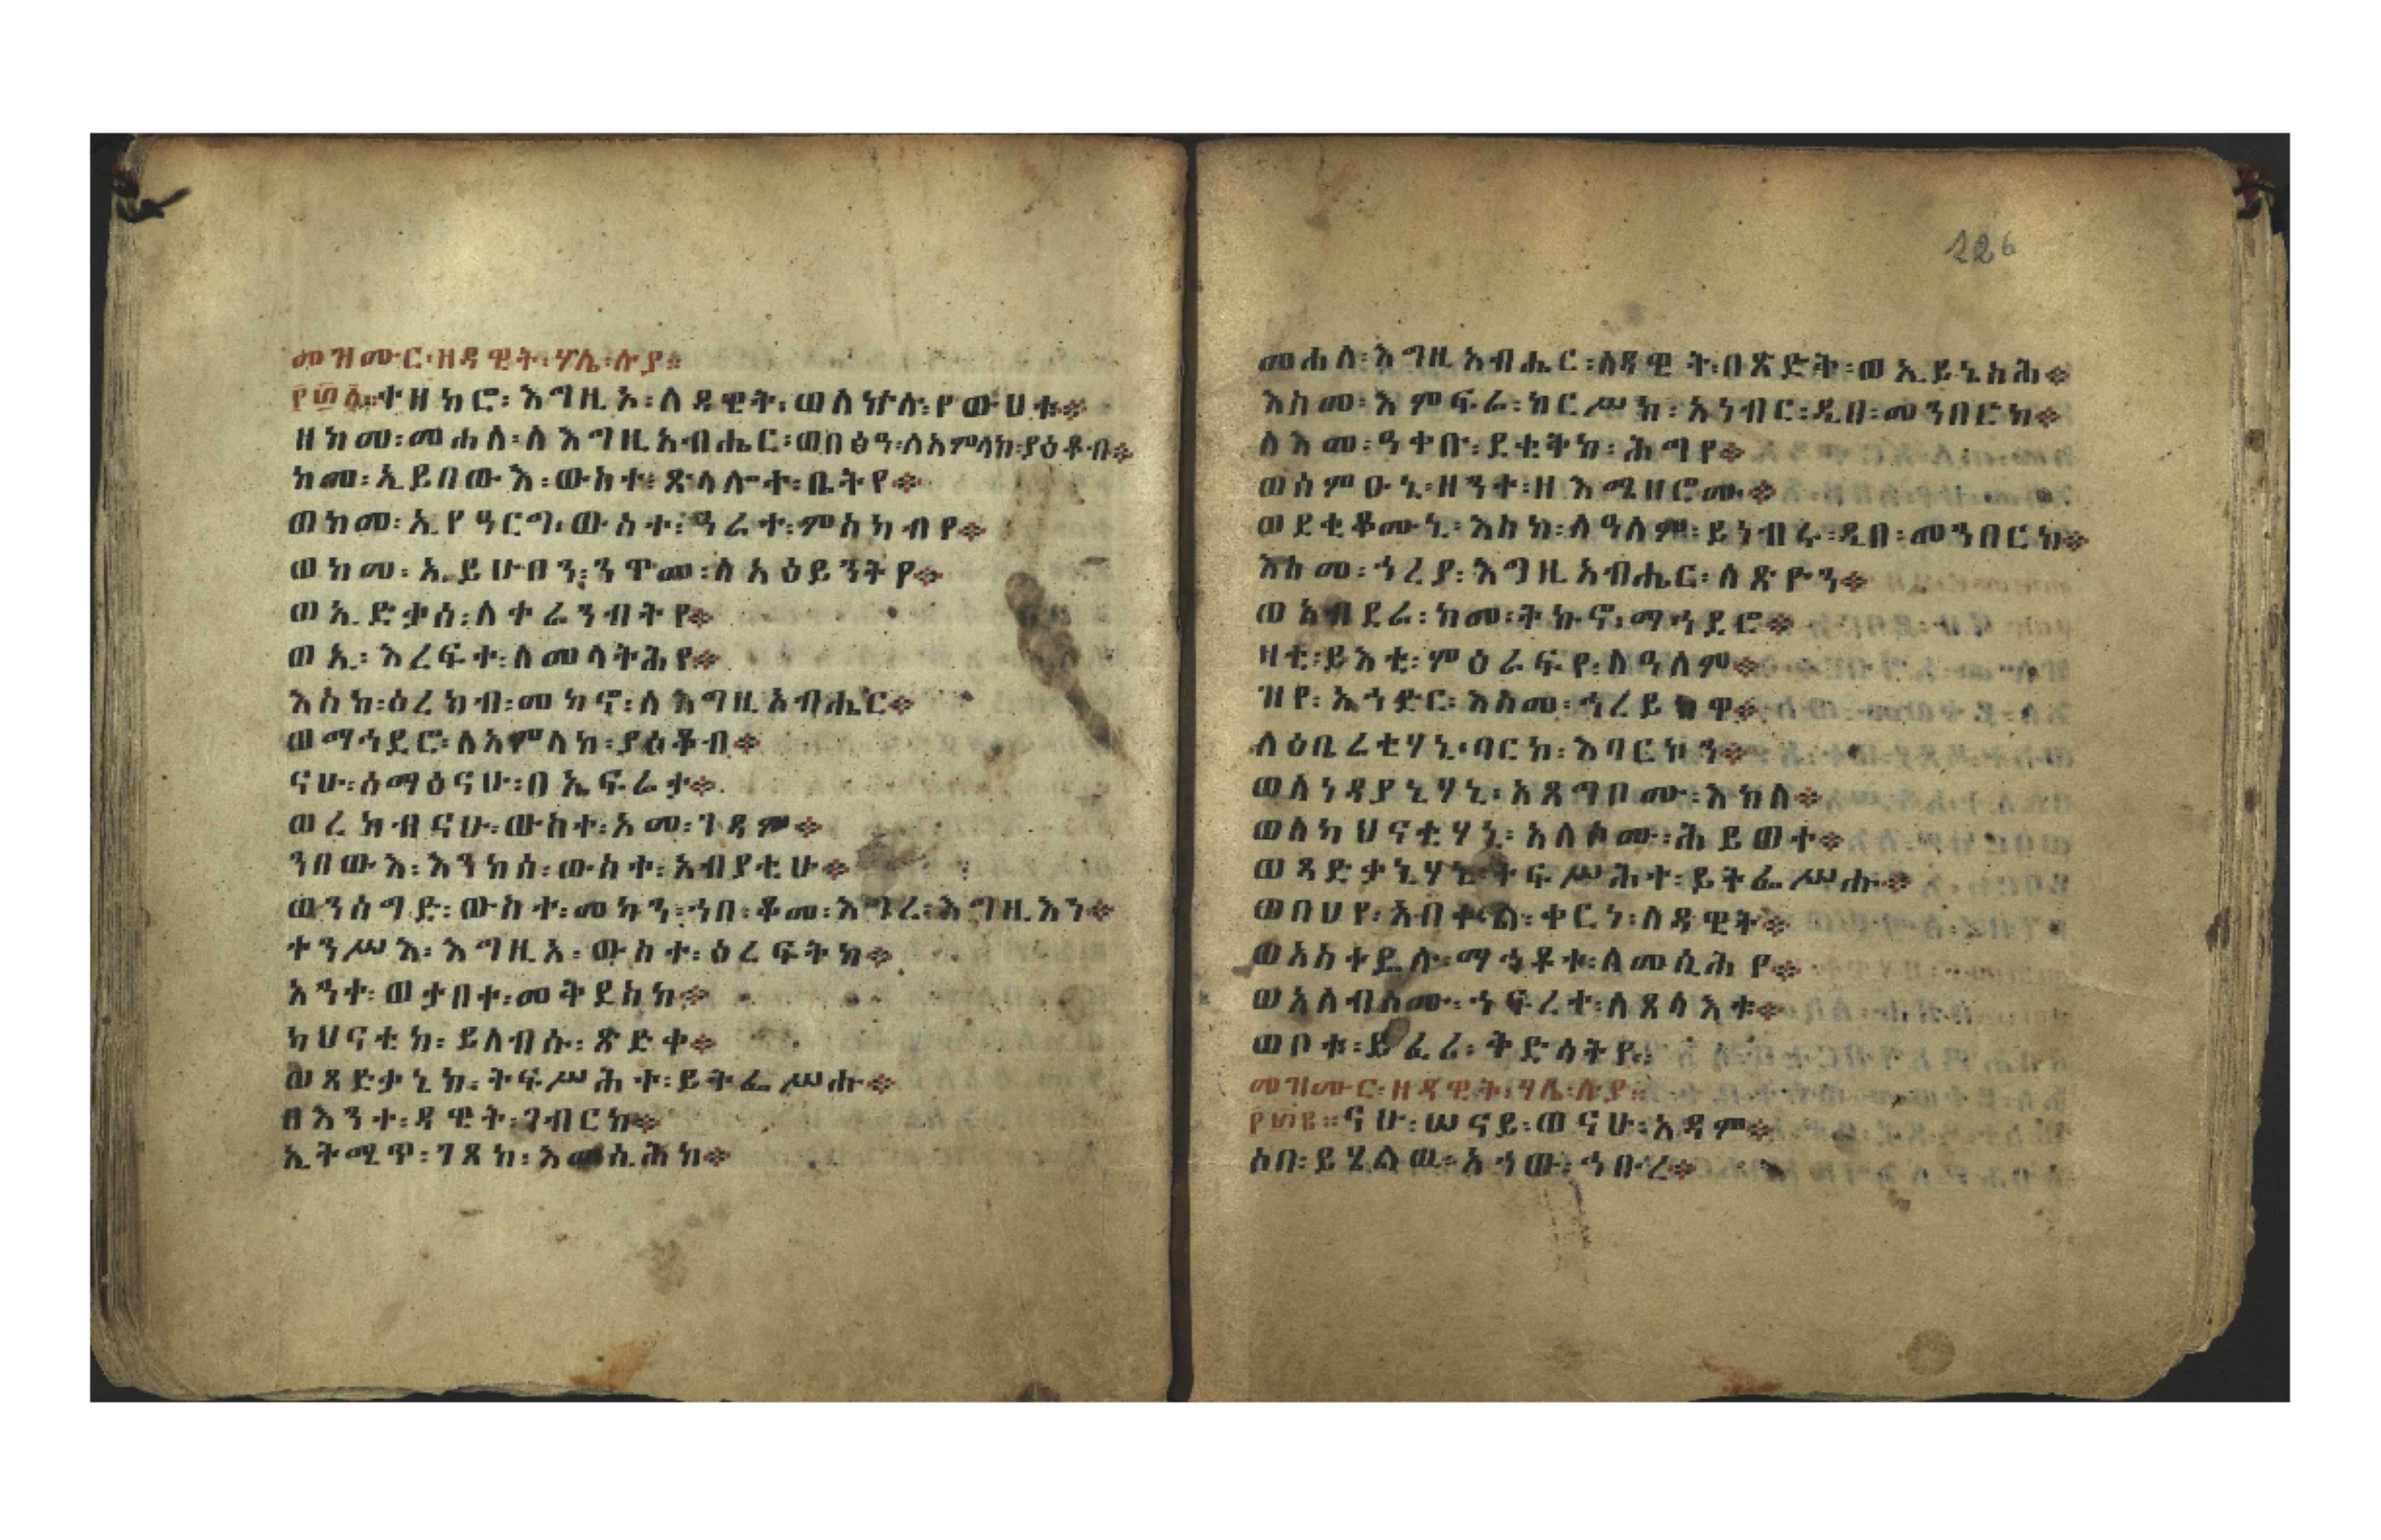 መዝሙር፡ዘዳዊት፡ሃሌ፡ሉያ።
፻፴፩።ተዘከሮ፡እግዚኦ፡ለዳዊት፡ወለኵሉ፡የውሀቱ፨
ዘከመ፡መሐለ፡ለእግዚአብሔር፡ወበፅዓ፡ለአምላከ፡ያዕቆብ፨
ከመ፡ኢይበውእ፡ውስተ፡ጽላሎተ፡ቤትየ፨
ወከመ፡ኢየዓርግ፡ውስተ፡ዓራተ፡ምስካብየ፨
ወከመ፡ኢይሁቦን፡ንዋመ፡ለአዕይንትየ፨
ወኢድቃሰ፡ለተራንብትየ፨
ወኢ፡እረፍተ፡ለመላትሕየ፨
እስከ፡ዕረክብ፡መካኖ፡ለእግዚአብሔር፨
ወማኅደሮ፡ለአምላከ፡ያዕቆብ፨
ናሁ፡ሰማዕናሁ፡በኤፍራታ፨
ወረከብናሁ፡ውስተ፡አመ፡ገዳም፨
ንበውእ፡እንከሰ፡ውስተ፡አብያቲሁ፨
ወንሰግድ፡ውስተ፡መካን፡ኀበ፡ቆመ፡እግረ፡እግዚእን፨
ተንሥእ፡እግዚኦ፡ውስተ፡ዕረፍትከ፨
አንተ፡ወታቦተ፡መቅደስከ፨
ካህናቲከ፡ይለብሱ፡ጽድቀ፨
ወጻድቃኒከ፡ትፍሥሕተ፡ይትፌሥሑ፨
በእንተ፡ዳዊት፡ገብርከ፨
ኢትሚጥ፡ገጸከ፡እመሲሕከ፨
መሐለ፡እግዚአብሔር፡ለዳዊት፡በጽድቅ፡ወኢይኔስሕ፨
እስመ፡እምፍሬ፡ከርሥከ፡አነብር፡ዲበ፡መንበርከ፨
ለእመ፡ዓቀቡ፡ደቂቅከ፡ሕግየ፨
ወስምዑኒ፡ዘንተ፡ዘእሜህሮሙ፨
ወደቂቆሙኒ፡እስከ፡ለዓለም፡ይነብሩ፡ዲበ፡መንበርከ፨
እስመ፡ኀረያ፡እግዚአብሔር፡ለጽዮን፨
ወአብደራ፡ከመ፡ትኩኖ፡ማኅደሮ፨
ዛቲ፡ይእቲ፡ምዕራፍየ፡ለዓለም፨
ዝየ፡አኀድር፡እስመ፡ኀረይክዋ፨
ለዕቤረቲሃኒ፡ባርኮ፡እባርካን፨
ወለነዳያኒሃኒ፡አጸግቦሙ፡እክለ፨
ወለካህናቲሃኒ፡አለብሶሙ፡ሕይወተ፨
ወጻድቃኒሃኒ፡ትፍሥሕተ፡ይትፌሥሑ፨
ወበህየ፡አበቍል፡ቀርነ፡ለዳዊት፨
ወአስተዴሉ፡ማኅቶቱ፡ለመሲሕየ፨
ወአለብሶሙ፡ኀፍረተ፡ለጸላእቱ፨
ወቦቱ፡ይፈሪ፡ቅድሳትየ።
መዝሙር፡ዘዳዊት፡ሃሌ፡ሉያ።
፻፴፪።ናሁ፡ሠናይ፡ወናሁ፡አዳም፨
ሶበ፡ይሄልው፡አኀው፡ኅቡረ፨
226